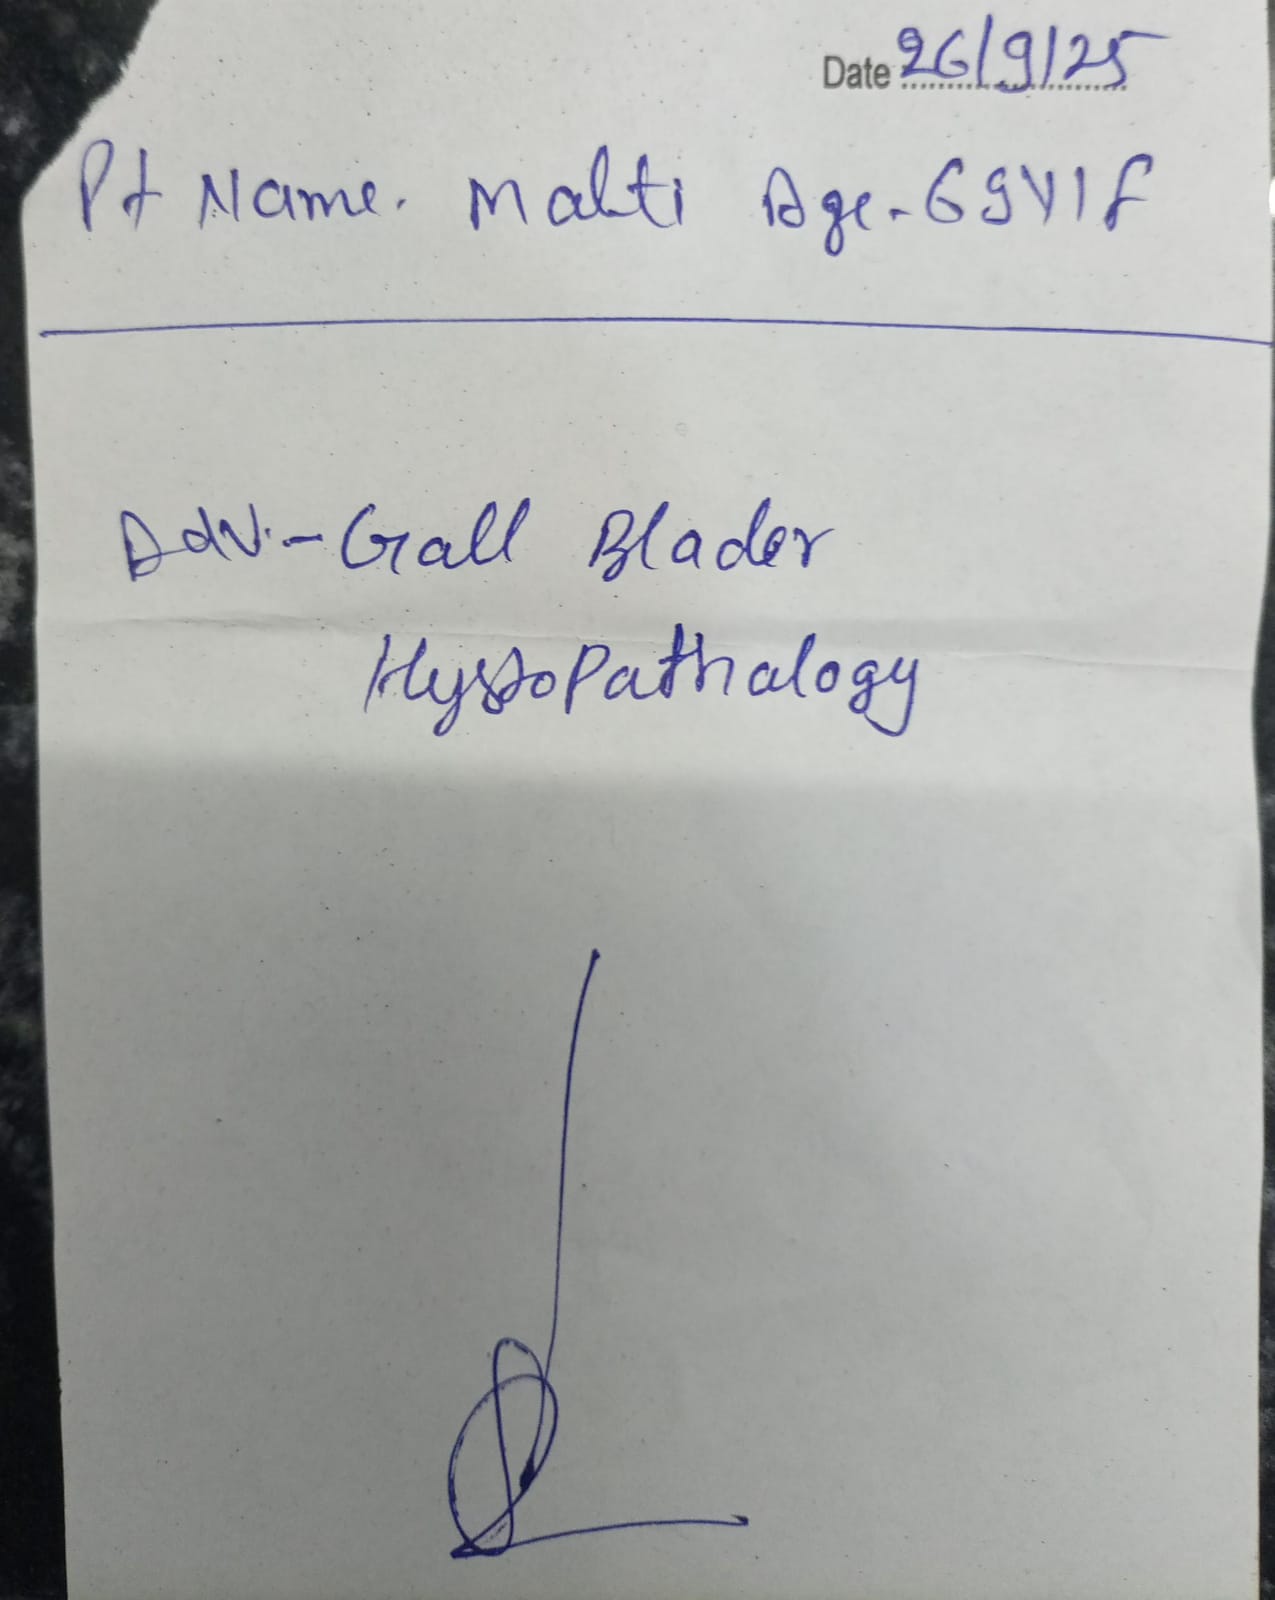 Date 26/9/25
Pt Name. Malti Age-69Y/F
Adv.-Gall Blader
HystoPathalogy